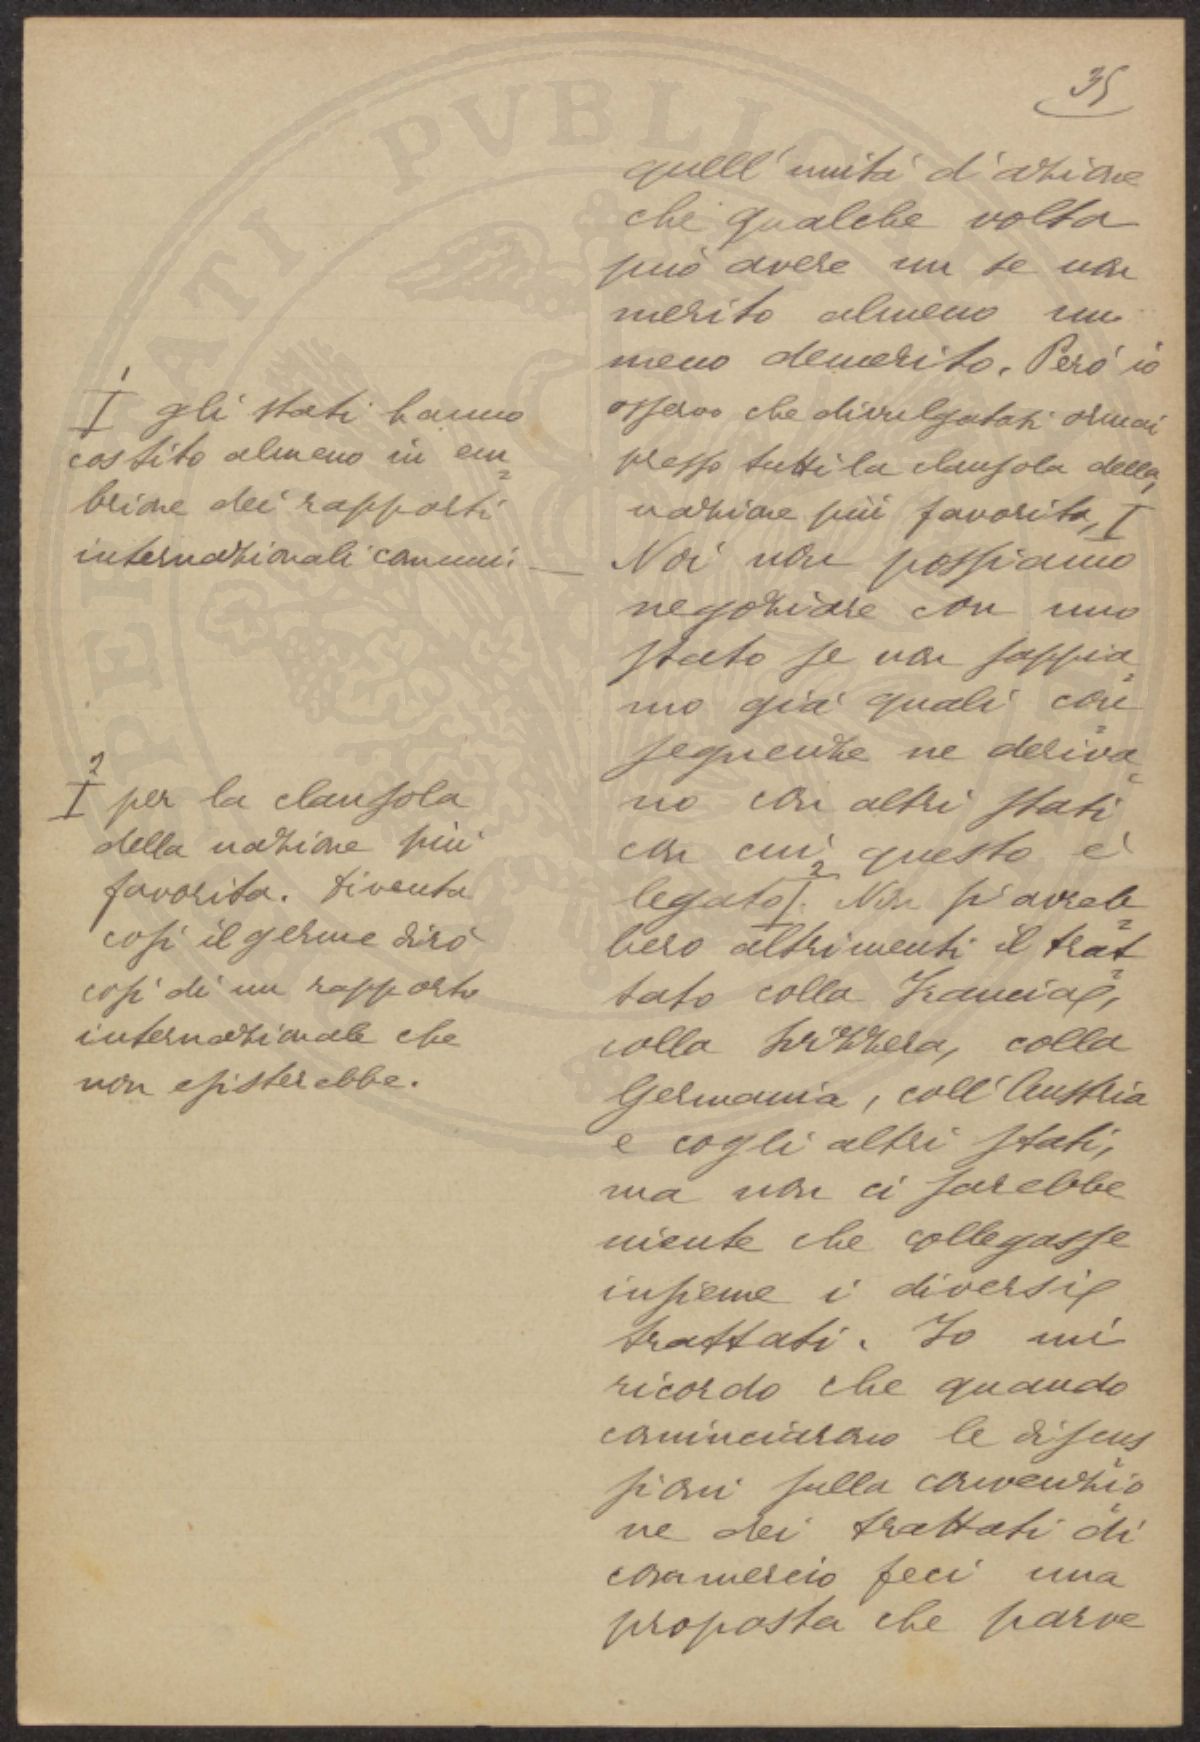 35
quell'unità d'azione
che qualche volta
può avere un se non
merito almeno un
meno demerito. Però io
osservo che divulgatasi ormai
presso tutti la clausola della
nazione più favorita, I
Noi non possiamo
negoziare con uno
stato se non sappia=
mo già quali con=
seguenze ne deriva=
no con altri stati
con cui questo è
legato I 2. Non s'avreb=
bero altrimenti il trat=
tato colla Francia,
colla Svizzera, colla
Germania, coll'Austria
e cogli altri stati,
ma non ci sarebbe
niente che collegasse
insieme i diversi
trattati. Io mi
ricordo che quando
cominciarono le discus=
sioni sulla convenzio=
ne dei trattati di
commercio feci una
proposta che parve
I 1 gli stati hanno
costito almeno in em=
brione dei rapporti
internazionali comuni —
I 2 per la clausola
della nazione più
favorita. Diventa
così il germe dirò
così di un rapporto
internazionale che
non esisterebbe.
PERATI PVBLICI